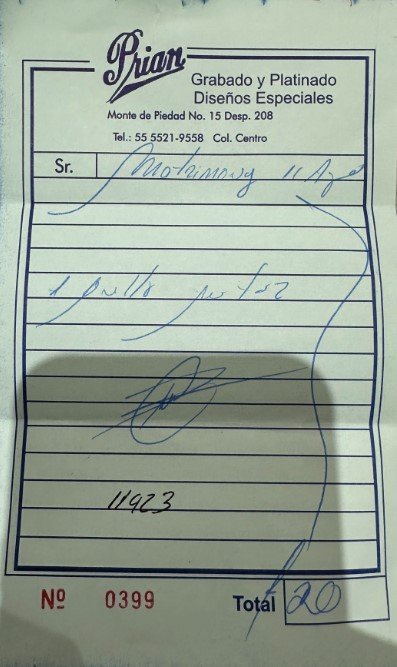 Prian
Grabado y Platinado
Diseños Especiales
Monte de Piedad No. 15 Desp. 208
Tel.: 55 5521-9558 Col. Centro
Sr. 11
1
11923
Nº 0399 Total 20